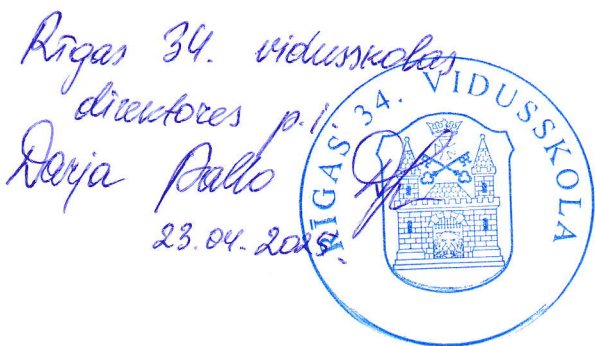 Rīgas 34. vidusskolas
direktores p.i.
Darja
23.04.2025.
RĪGAS 34. VIDUSSKOLA